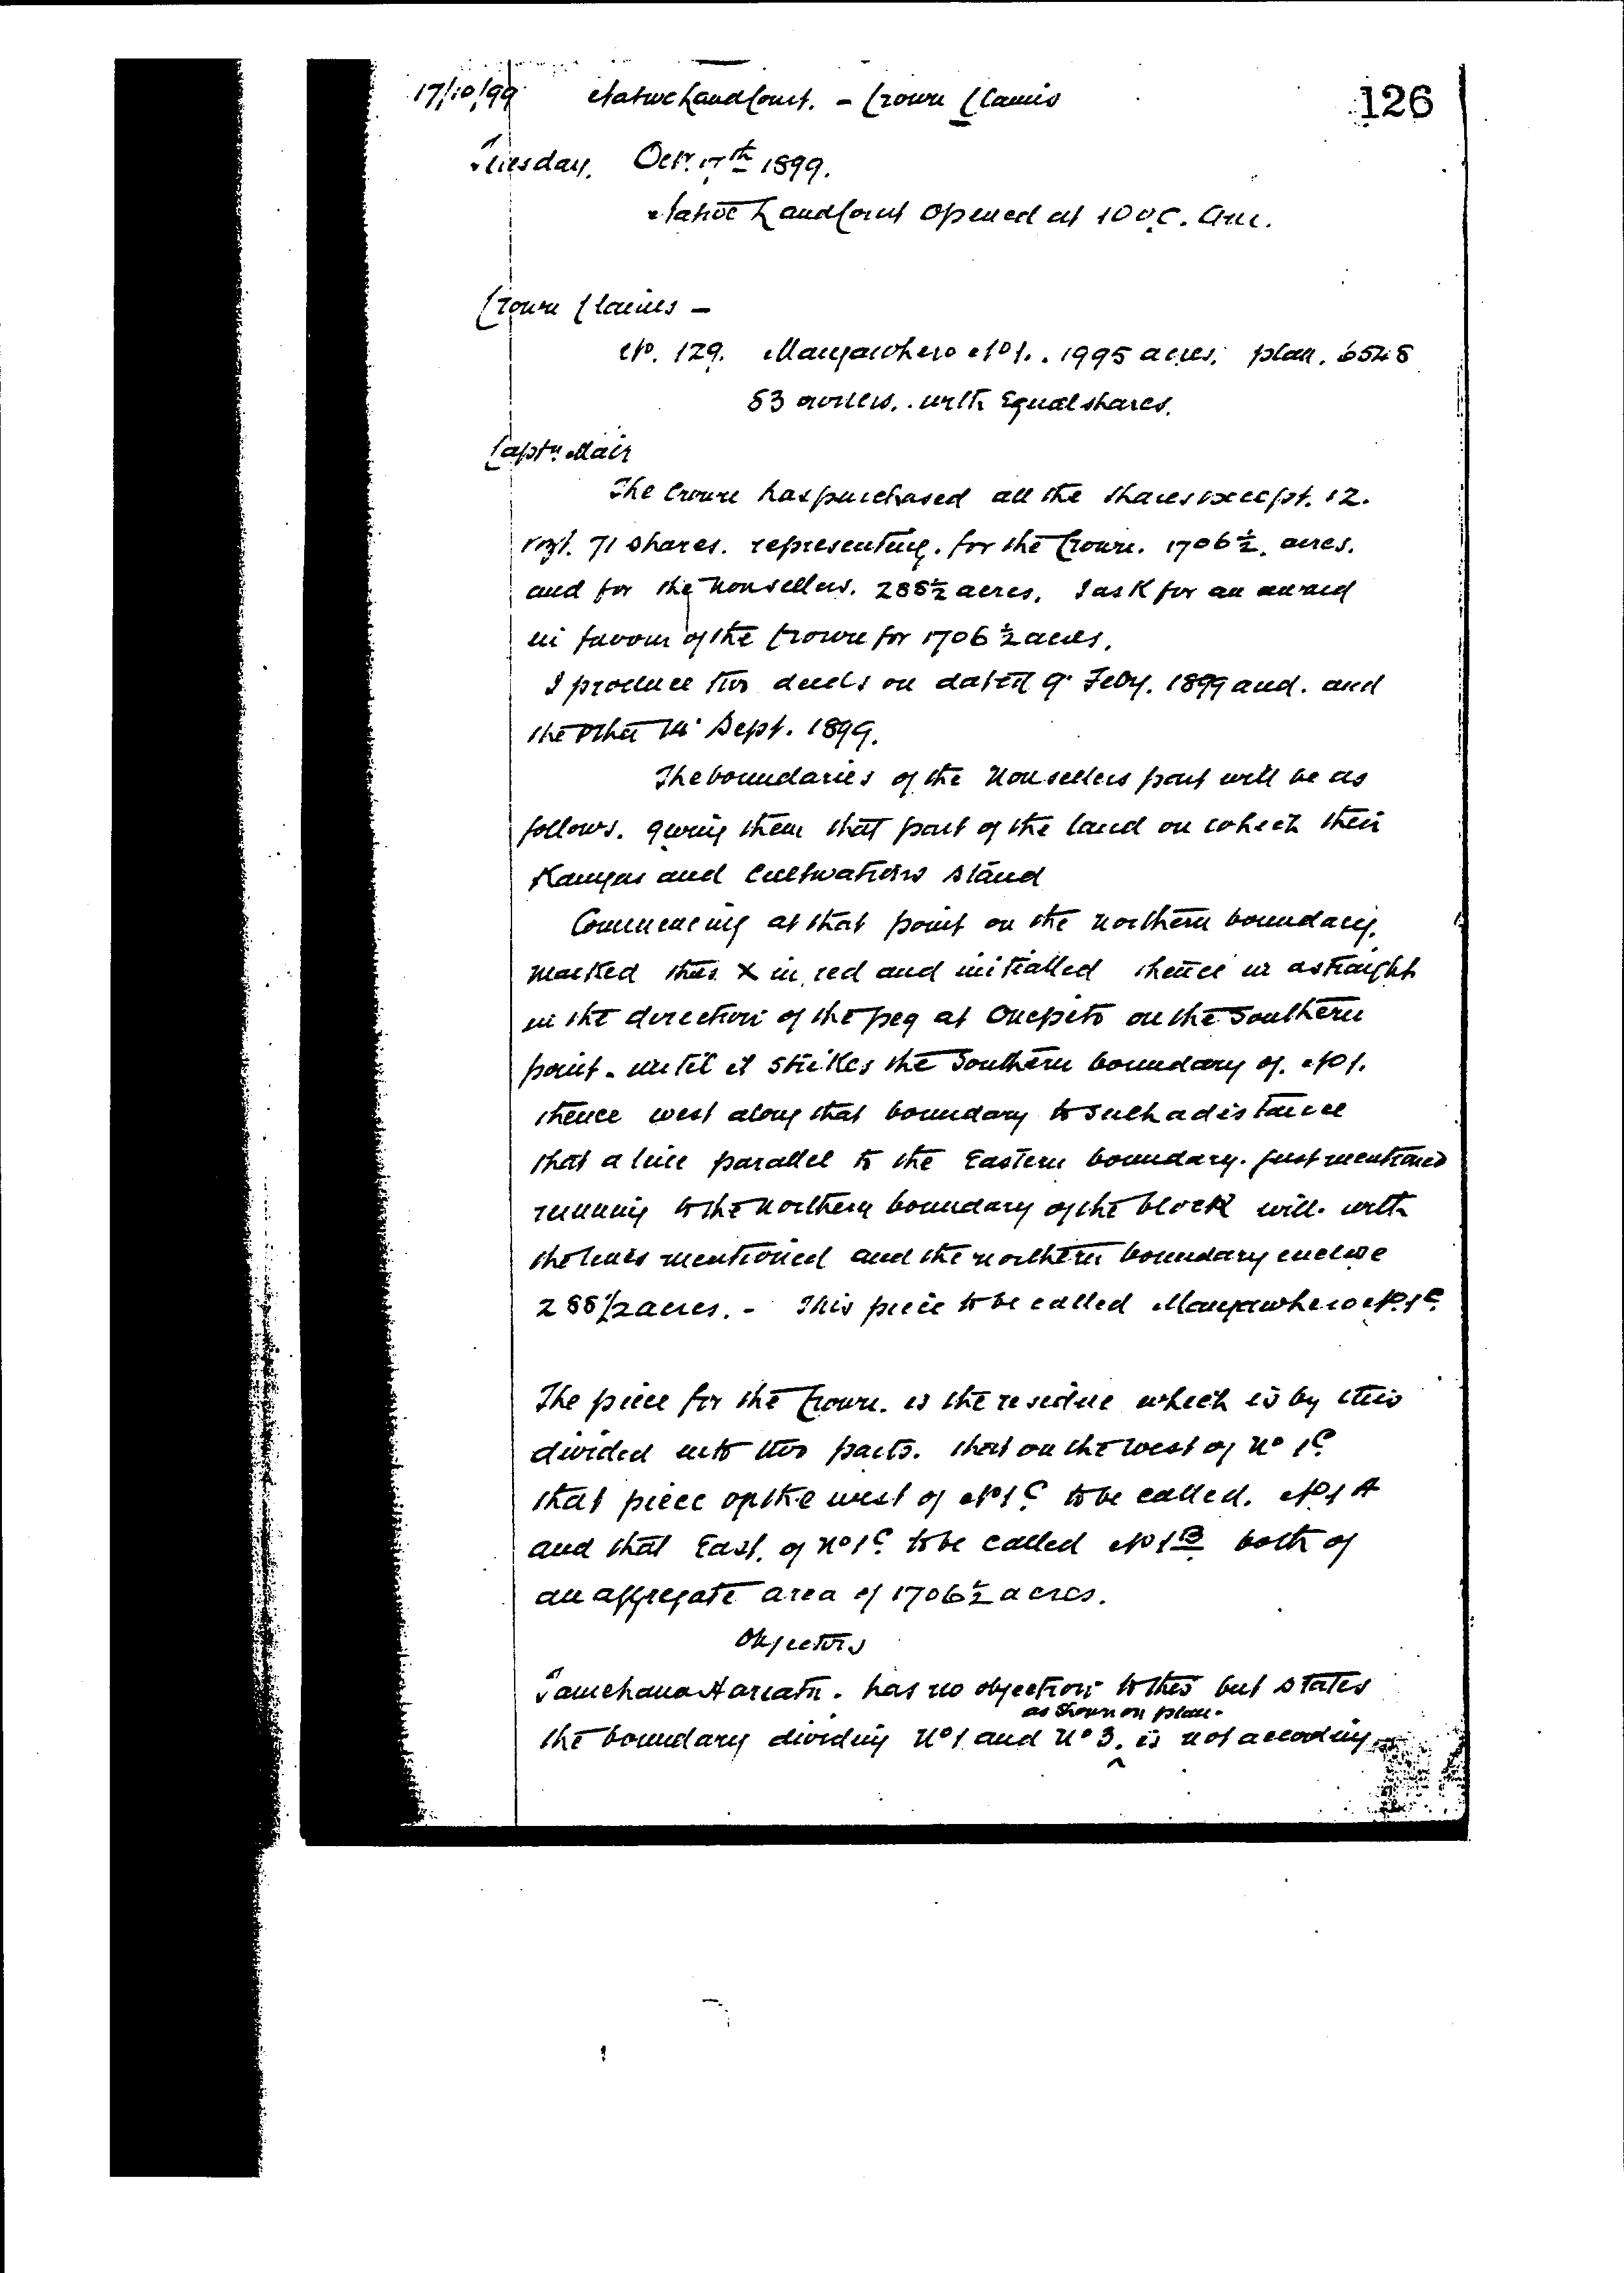 17/10/99 Native Land Court. - Crown Claims 126
Tuesday. Octr. 17th 1899.
Native Land Court opened at 10 o.c. a.m.
Crown Claims -
No. 129. Mangawhero No 1. . 1995 acres. plan. 6528
83 owners. . with Equal shares.
Captn Mair
The Crown has purchased all the shares except. 12.
vizt. 71 shares. representing. for the Crown. 1706½. acres.
and for the nonsellers. 288½ acres. I ask for an award
in favour of the Crown for 1706½ acres.
I produce two deeds on dated 9. Feby. 1899 and. and
the other 14. Sept. 1899.
The boundaries of the Nonsellers part will be as
follows. giving them that part of the land on which their
Kaingas and Cultivations stand
Commencing at that point on the northern boundary.
marked thus X in red and initialled thence in a straight
in the direction of the peg at Onepito on the Southern
point - until it strikes the Southern boundary of. No 1.
thence west along that boundary to such a distance
that a line parallel to the Eastern boundary. just mentioned
running to the northern boundary of the block will. with
the lines mentioned and the northern boundary enclose
288½ acres. - This piece to be called Mangawhero No. 1C
The piece for the Crown. is the residue which is by this
divided into two parts. that on the west of No 1C
that piece on the west of No 1C to be called. No 1A
and that East. of No 1C to be called No 1B both of
an aggregate area of 1706½ acres.
Objectors
Tamehana. has no objection to this but states
as shown on plan -
the boundary dividing No 1 and No 3. ^ is not according